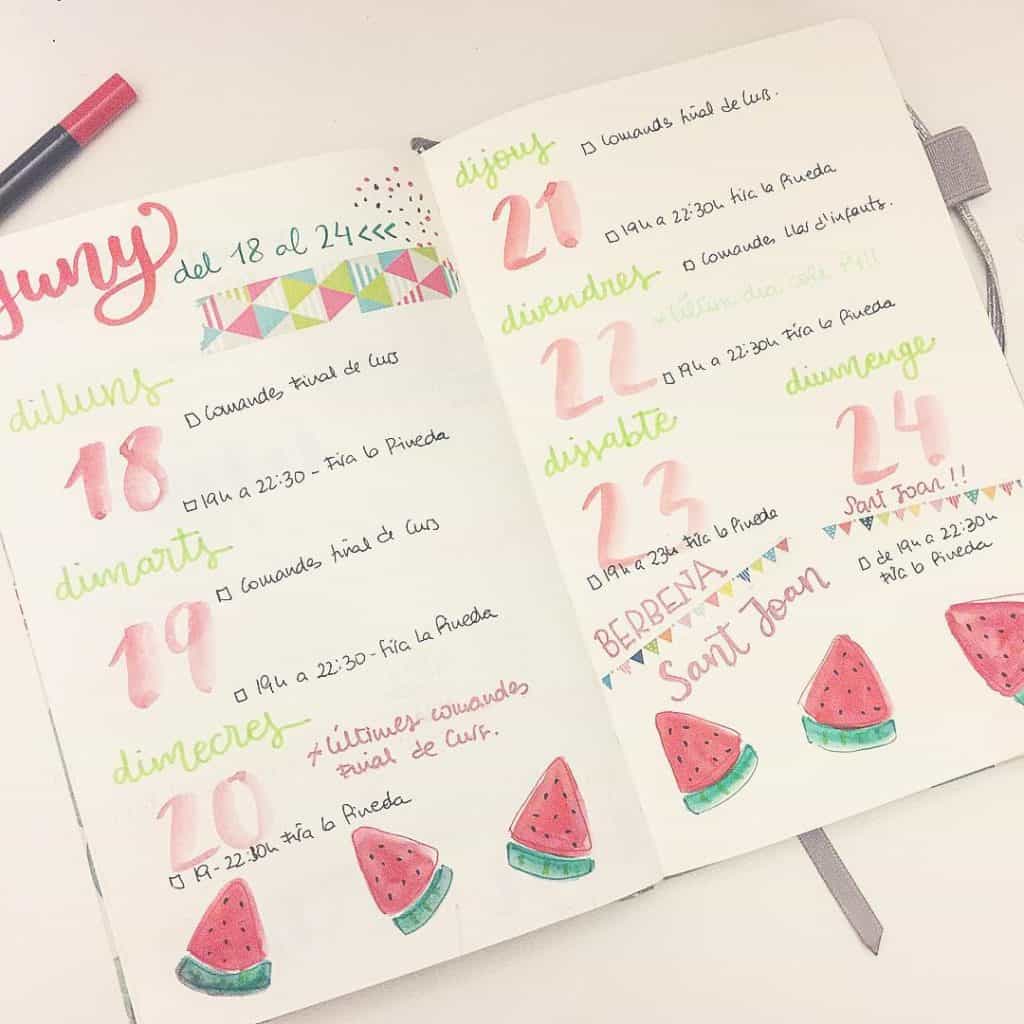 juny
del 18 al 24 <<<
dilluns
18
□ Comandes Final de Curs
□ 19h a 22:30 - Fira la Pineda
dimarts
19
□ Comandes final de Curs
□ 19h a 22:30 - Fira La Pineda
dimecres
20
* Últimes comandes
Final de Curs.
□ 19 - 22:30h Fira la Pineda
dijous
21
□ Comandes final de Curs.
□ 19h a 22:30h fira la Pineda
divendres
22
□ Comandes llar d'infants.
* Últim dia cole
□ 19h a 22:30h Fira la Pineda
dissabte
23
□ 19h a 23h Fira la Pineda
BERBENA
Sant Joan
diumenge
24
Sant Joan!!
□ de 19h a 22:30h
fira la Pineda